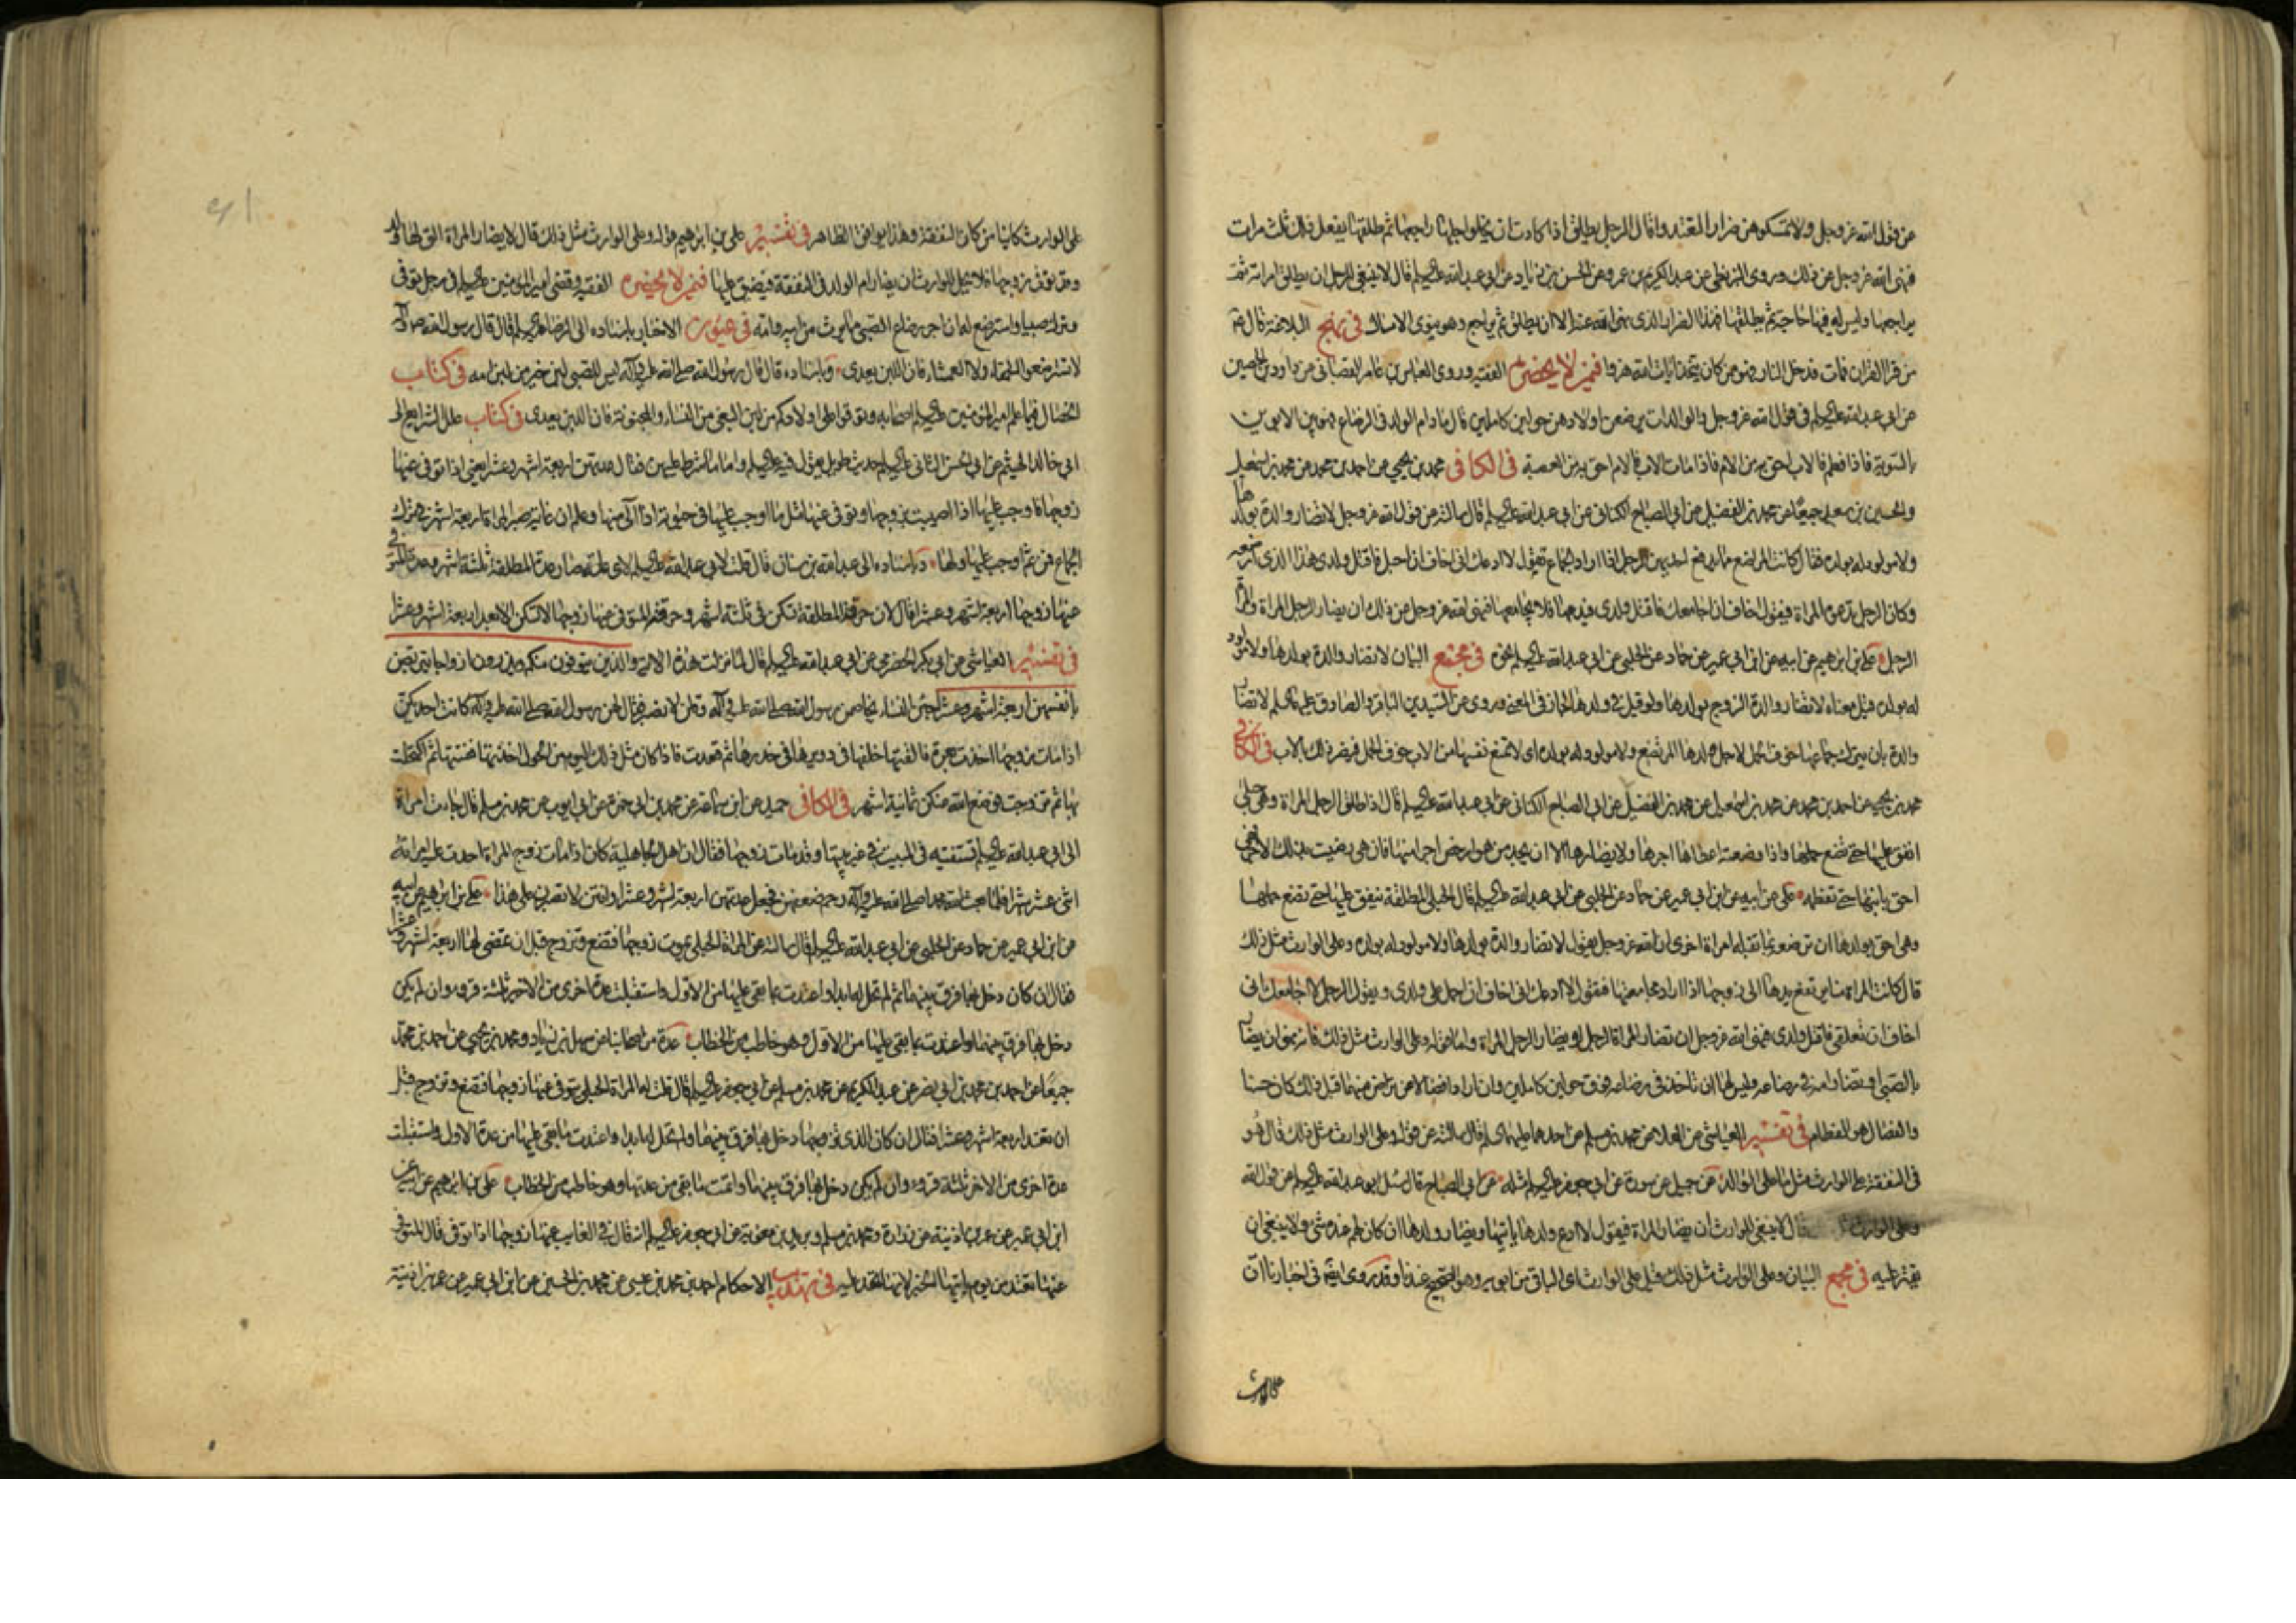 عن قول الله عز وجل ولا تمسكوهن ضرارا لتعتدوا قال الرجل يطلق اذا كادت ان يخلوا اجلها راجعها ثم طلقها يفعل ذلك ثلث مرات
فنهى الله عز وجل عن ذلك وروى البزنطي عن عبد الكريم بن عمرو عن الحسن بن زياد عن ابي عبد الله عليه السلام قال لا ينبغي للرجل ان يطلق امراته ثم
يراجعها وليس له فيها حاجة ثم يطلقها فهذا الضرار الذي نهى الله عنه الا ان يطلق ثم يراجع وهو ينوى الامساك في نهج البلاغة قال ع
من قرا القران فمات فدخل النار فهو ممن كان يتخذ ايات الله هزوا فيمن لا يحضره الفقيه وروى العباس بن عامر القصباني عن داود بن الحصين
عن ابي عبد الله عليه السلام في قول الله عز وجل والوالدات يرضعن اولادهن حولين كاملين قال ما دام الولد في الرضاع فهو بين الابوين
بالسوية فاذا فطم فالاب احق به من الام فاذا مات الاب فالام احق به من العصبة في الكافي محمد بن يحيى عن احمد بن محمد عن محمد بن اسمعيل
والحسين بن سعيد جميعا عن محمد بن الفضيل عن ابي الصباح الكناني عن ابي عبد الله عليه السلام قال سالته عن قول الله عز وجل لا تضار والدة بولدها
ولا مولود له بولده فقال كانت المراضع مما يدفع احديهن الرجل اذا اراد الجماع تقول لا ادعك انى اخاف ان احبل فاقتل ولدى هذا الذى ارضعه
وكان الرجل تدعوه المراة فيقول اخاف ان اجامعك فاقتل ولدى فيدعها فلا يجامعها فنهى الله عز وجل عن ذلك ان يضار الرجل المراة والمراة
الرجل علي بن ابراهيم عن ابيه عن ابن ابي عمير عن حماد عن الحلبي عن ابي عبد الله عليه السلام نحوه في مجمع البيان لا تضار والدة بولدها ولا مولود
له بولده قيل معناه لا تضار والدة الزوج بولدها ولو قيل في ولدها لجاز في المعنى وروى عن السيدين الباقر والصادق عليهما السلام لا تضار
والدة بان يترك جماعها خوف الحمل لاجل ولدها المرتضع ولا مولود له بولده اى لا تمنع نفسها من الاب خوف الحمل فيضر ذلك بالاب في الكافي
محمد بن يحيى عن احمد بن محمد عن محمد بن اسمعيل عن محمد بن الفضيل عن ابي الصباح الكناني عن ابي عبد الله عليه السلام قال اذا طلق الرجل المراة وهى حبلى
انفق عليها حتى تضع حملها واذا وضعته اعطاها اجرها ولا يضارها الا ان يجد من هو ارخص اجرا منها فان هى رضيت بذلك الاجر فهى
احق بابنها حتى تفطمه علي عن ابيه عن ابن ابي عمير عن حماد عن الحلبي عن ابي عبد الله عليه السلام قال الحبلى المطلقة ينفق عليها حتى تضع حملها
وهى احق بولدها ان ترضعه بما تقبله امراة اخرى ان الله عز وجل يقول لا تضار والدة بولدها ولا مولود له بولده وعلى الوارث مثل ذلك
قال كانت المراة منا يرتفع يدها الى زوجها اذا اراد مجامعتها فتقول لا ادعك انى اخاف ان احمل على ولدى ويقول الرجل لا اجامعك انى
اخاف ان تعلقى فاقتل ولدى فنهى الله عز وجل ان تضار المراة الرجل او يضار الرجل المراة واما قوله وعلى الوارث مثل ذلك فانه نهى ان يضار
بالصبى او يضار امه في رضاعه وليس لها ان تاخذ في رضاعه فوق حولين كاملين وان ارادا فصالا عن تراض منهما قبل ذلك كان حسنا
والفصال هو الفطام في تفسير العياشي عن العلا عن محمد بن مسلم عن احدهما عليهما السلام قال سالته عن قوله وعلى الوارث مثل ذلك قال هو
في النفقة على الوارث مثل ما على الوالد عن جميل عن سورة عن ابي جعفر عليه السلام مثله عن ابي الصباح قال سئل ابو عبد الله عليه السلام عن قول الله
وعلى الوارث مثل قال لا ينبغى للوارث ان يضار المراة فيقول لا ادع ولدها ياتيها ويضار ولدها ان كان لهم عنده شى ولا ينبغى ان
يقتر عليه في مجمع البيان وعلى الوارث مثل ذلك قيل على الوارث اى الباقى من ابويه وهو الصحيح عندنا وقد روى ايضا في اخبارنا ان
على الوارث
على الوارث كائنا من كان النفقة وهذا يوافق الظاهر في تفسير علي بن ابراهيم قوله وعلى الوارث مثل ذلك قال لا يضار المراة التى لها ولد
وقد توفى زوجها فلا يحل للوارث ان يضار ام الولد في النفقة فيضيق عليها فيمن لا يحضره الفقيه وقضى امير المؤمنين عليه السلام في رجل توفى
وترك صبيا واسترضع له ان اجر رضاع الصبى مما يرث من ابيه وامه في عيون الاخبار باسناده الى الرضا عليه السلام قال قال رسول الله ص واله
لا تسترضعوا الحمقاء ولا العمشاء فان اللبن يعدى وباسناده قال قال رسول الله صلى الله عليه وآله ليس للصبى لبن خير من لبن امه في كتاب
الخصال فيما علم امير المؤمنين عليه السلام اصحابه وتوقوا على اولادكم من لبن البغى من النساء والمجنونة فان اللبن يعدى في كتاب علل الشرايع الى
ابي خالد الهيثم عن ابي الحسن الثاني عليه السلام حديث طويل يقول فيه عليه السلام واما ما شرط عليهن فقال عدتهن اربعة اشهر وعشرا يعنى اذا توفى عنها
زوجها فاوجب عليها اذا اصيبت بزوجها وتوفى عنها مثل ما اوجب عليها في حيوته اذا آلى منها وعلم ان غاية صبر المراة اربعة اشهر في ترك
الجماع فمن ثم اوجب عليها ولها وباسناده الى عبد الله بن سنان قال قلت لابي عبد الله عليه السلام لاى علة صار عدة المطلقة ثلثة اشهر وعدة المتوفى
عنها زوجها اربعة اشهر وعشرا قال لان حرقة المطلقة تسكن في ثلثة اشهر وحرقة المتوفى عنها زوجها لا تسكن الا بعد اربعة اشهر وعشرا
في تفسير العياشي عن ابي بكر الحضرمي عن ابي عبد الله عليه السلام قال لما نزلت هذه الاية والذين يتوفون منكم ويذرون ازواجا يتربصن
بانفسهن اربعة اشهر وعشرا جئن النساء يخاصمن رسول الله صلى الله عليه وآله وقلن لا نصبر فقال لهن رسول الله صلى الله عليه وآله كانت احديكن
اذا مات زوجها اخذت بعرة فالقتها خلفها في دويرها في خدرها ثم قعدت فاذا كان مثل ذلك اليوم من الحول اخذتها ففتتها ثم اكتحلت
بها ثم تزوجت فوضع الله عنكن ثمانية اشهر في الكافي حميد عن ابن سماعة عن محمد بن ابي حمزة عن ابي ايوب عن محمد بن مسلم قال جاءت امراة
الى ابي عبد الله عليه السلام تستفتيه في المبيت في غير بيتها وقد مات زوجها فقال ان اهل الجاهلية كان اذا مات زوج المراة احدت عليه امراته
اثنى عشر شهرا فلما بعث الله محمدا صلى الله عليه وآله رحم ضعفهن فجعل عدتهن اربعة اشهر وعشرا وانتن لا تصبرن على هذا علي بن ابراهيم عن ابيه
عن ابن ابي عمير عن حماد عن الحلبي عن ابي عبد الله عليه السلام قال سالته عن المراة الحبلى يموت زوجها فتضع وتزوج قبل ان تمضى لها اربعة اشهر وعشرا
فقال ان كان دخل بها فرق بينهما ثم لم تحل له ابدا واعتدت بما بقى عليها من الاول واستقبلت عدة اخرى من الاخير ثلثة قروء وان لم يكن
دخل بها فرق بينهما واعتدت بما بقى عليها من الاول وهو خاطب من الخطاب عدة من اصحابنا عن سهل بن زياد ومحمد بن يحيى عن احمد بن محمد
جميعا عن احمد بن محمد بن ابي نصر عن عبد الكريم عن محمد بن مسلم عن ابي جعفر عليه السلام قال قلت له المراة الحبلى يتوفى عنها زوجها فتضع وتزوج قبل
ان تعتد اربعة اشهر وعشرا فقال ان كان الذى تزوجها دخل بها فرق بينهما ولم تحل له ابدا واعتدت بما بقى عليها من عدة الاول واستقبلت
عدة اخرى من الاخر ثلثة قروء وان لم يكن دخل بها فرق بينهما واتمت ما بقى من عدتها وهو خاطب من الخطاب علي بن ابراهيم عن ابيه عن
ابن ابي عمير عن عمر بن اذينة عن زرارة ومحمد بن مسلم وبريد بن معوية عن ابي جعفر عليه السلام انه قال في الغايب عنها زوجها اذا توفى قال المتوفى
عنها تعتد من يوم ياتيها الخبر لانها تحد عليه في تهذيب الاحكام احمد بن محمد بن عيسى عن محمد بن الحسين عن ابن ابي عمير عن عمر بن اذينة